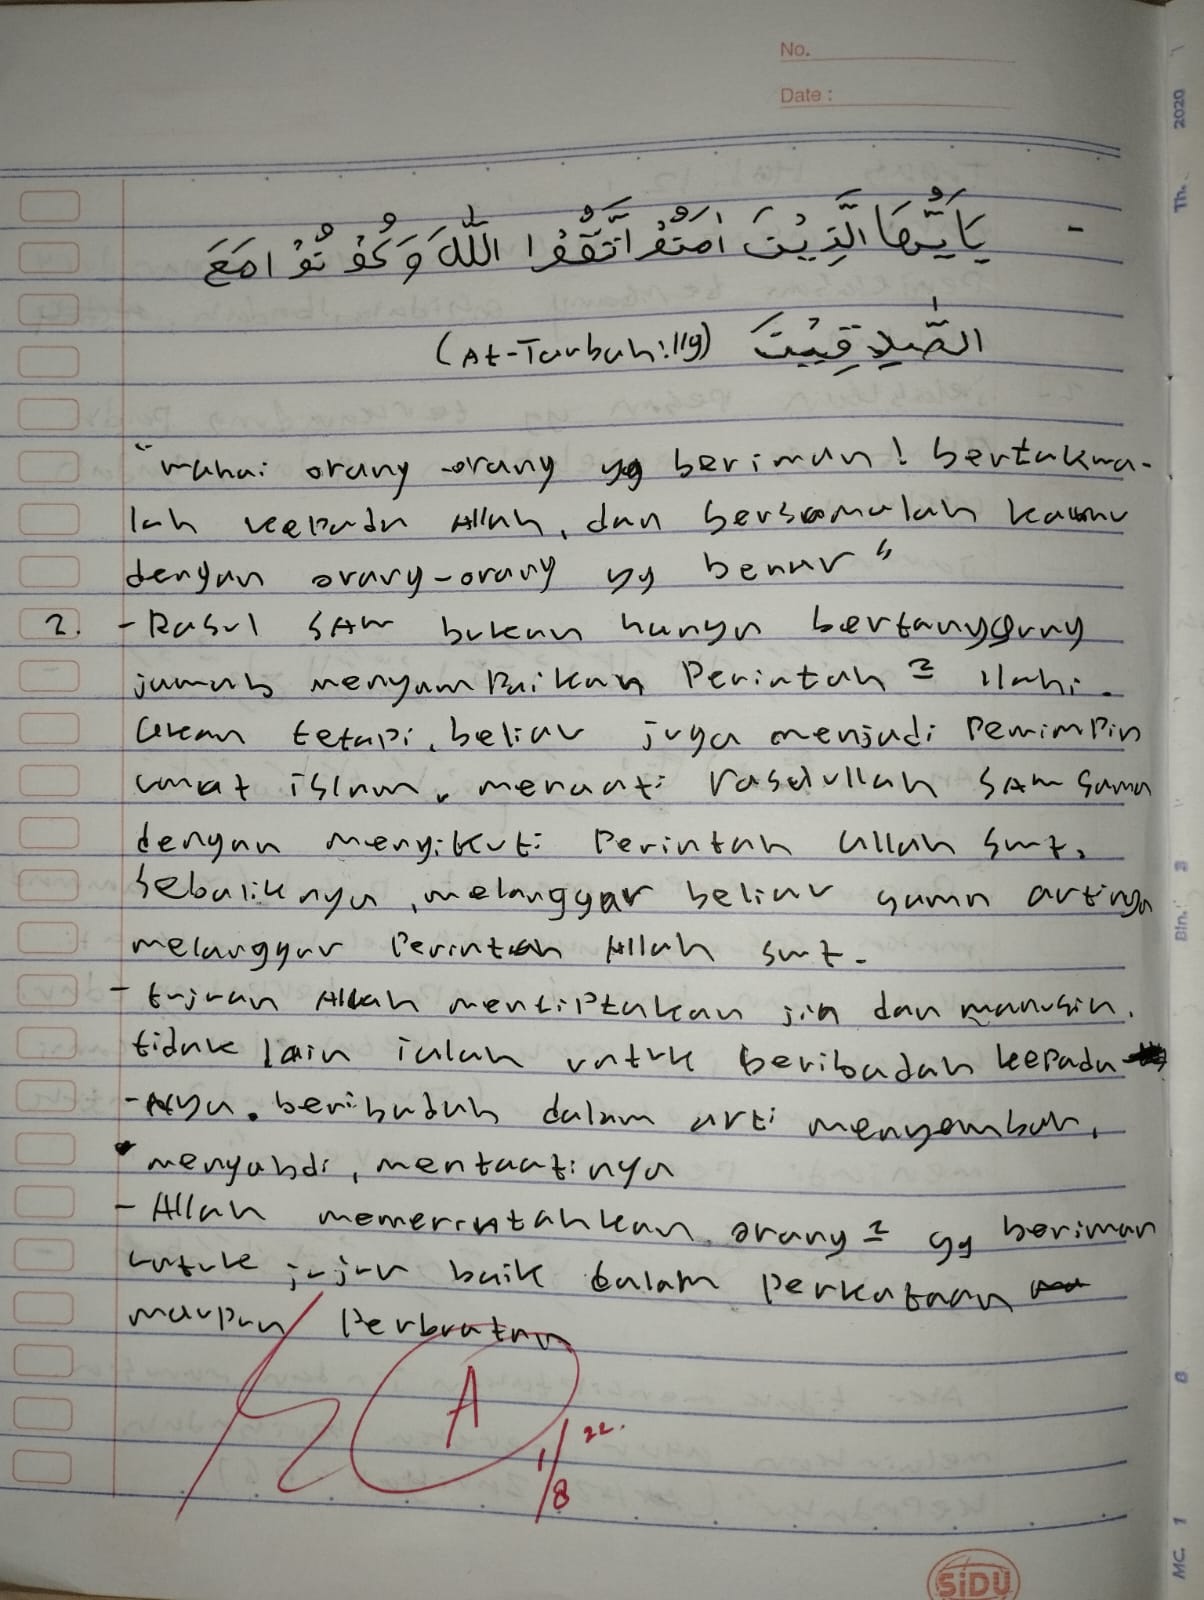 No.
Date :
- يَاَيُّهَا الَّذِيْنَ اٰمَنُوا اتَّقُوا اللّٰهَ وَكُوْنُوْا مَعَ
الصّٰدِقِيْنَ (At-Taubah:119)
"wahai orang-orang yg beriman! bertakwa-
lah kepada Allah, dan bersamalah kamu
dengan orang-orang yg benar"
2. - Rasul SAW bukan hanya bertanggung
jawab menyampaikan Perintah 2 ilahi.
akan tetapi, beliau juga menjadi Pemimpin
umat islam, menaati rasulullah SAW sama
dengan mengikuti Perintah allah swt,
sebaliknya, melanggar beliau sama artinya
melanggar Perintah Allah swt.
- tujuan Allah mentiptakan jin dan manusia,
tidak lain ialah untuk beribadah kepada
-Nya. beribadah dalam arti menyembah,
menyabdi, mentaatinya
- Allah memerintahkan orang 2 yg beriman
untuk jujur baik dalam Perkataan
maupun Perbuatan
A
1/8 22.
SiDU
Th. 2020
Bln. 3
MC. 1 8